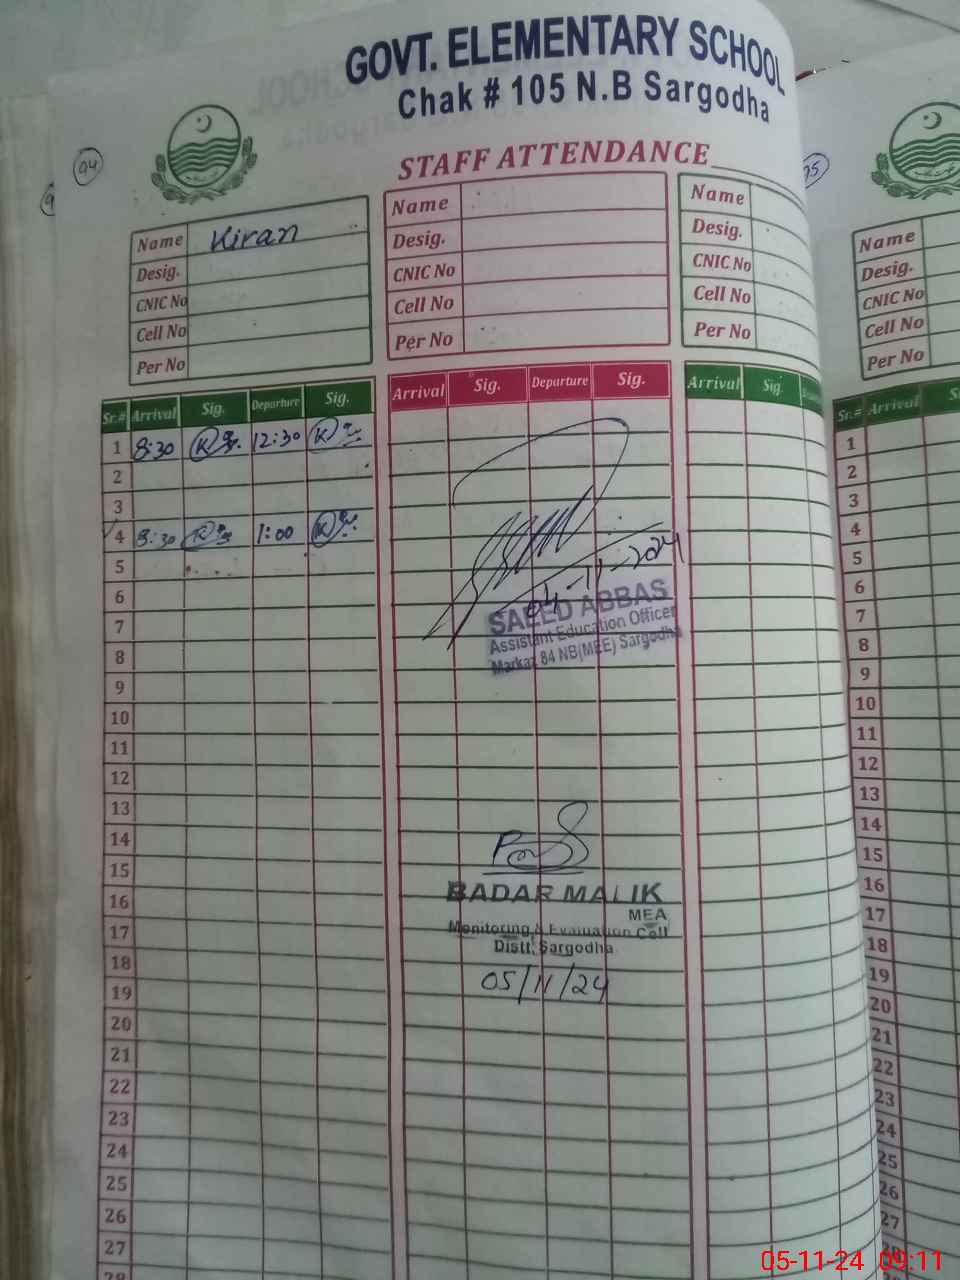 GOVT. ELEMENTARY SCHOOL
Chak # 105 N.B Sargodha
94
STAFF ATTENDANCE
95
Name Kiran
Desig.
CNIC No
Cell No
Per No
Name
Desig.
CNIC No
Cell No
Per No
Name
Desig.
CNIC No
Cell No
Per No
Name
Desig.
CNIC No
Cell No
Per No
Sr.# Arrival Sig. Departure Sig. Arrival Sig. Departure Sig. Arrival Sig.
1 8:30 12:30
2
3
4 8:30 1:00
5
6
7
8
9
10
11
12
13
14
15
16
17
18
19
20
21
22
23
24
25
26
27
28
04-11-2024
SAEED ABBAS
Assistant Education Officer
Markaz 84 NB(MEE) Sargodha
BADAR MALIK
MEA
Monitoring & Evaluation Cell
Distt, Sargodha
05/11/24
Sr.# Arrival
1
2
3
4
5
6
7
8
9
10
11
12
13
14
15
16
17
18
19
20
21
22
23
24
25
26
27
28
05-11-24 09:11